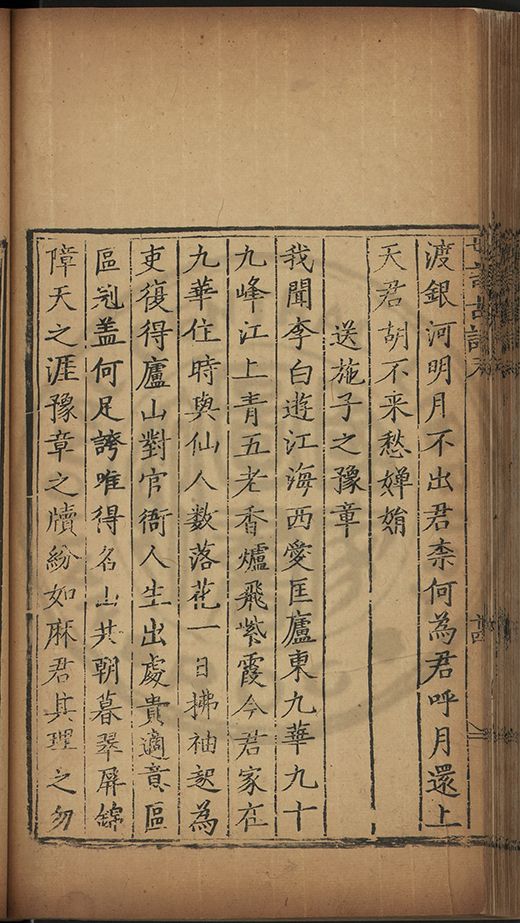 渡銀河明月不出君柰何為君呼月還上
天君胡不来愁嬋娟
送施子之豫章
我聞李白遊江海西愛匡廬東九華九十
九峰江上青五老香爐飛紫霞今君家在
九華住時與仙人數落花一日拂袖起為
吏復得廬山對官衙人生出處貴適意區
區剡盖何足誇唯得名山共朝暮翠屏錦
障天之涯豫章之牘紛如麻君其理之勿